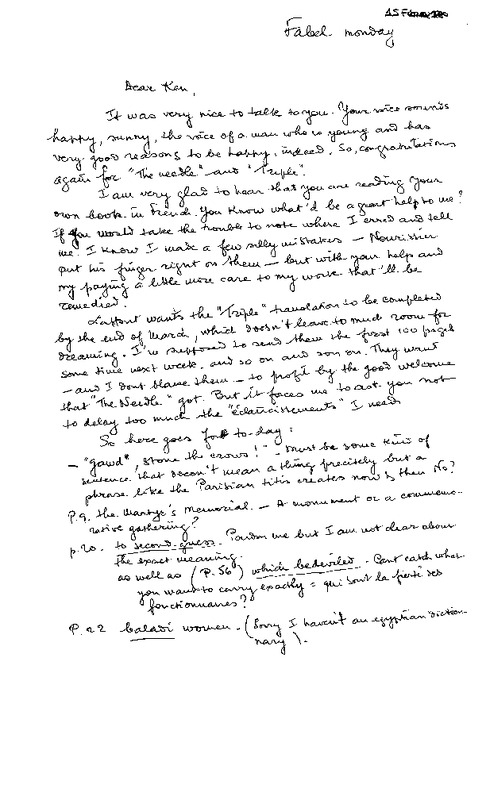 Fabel. monday
Dear Ken,
It was very nice to talk to you. Your voice sounds
happy, sunny, the voice of a man who is young and has
very good reasons to be happy, indeed. So, congratulations
again for "The needle" and "Triple".
I am very glad to hear that you are reading your
own book in French. You know what'd be a great help to me?
If you would take the trouble to note where I erred and tell
me. I know I made a few silly mistakes — Nourissier
put his finger right on them — but with your help and
my paying a little more care to my work that'll be
remedied.
Laffont wants the "Triple" translation to be completed
by the end of March, which doesn't leave to much room for
dreaming. I'm supposed to send them the first 100 pages
some time next week, and so on and son on. They want
— and I dont blame them — to profit by the good welcome
that "The Needle" got. But it forces me to ask you not
to delay too much the "éclaircissements" I need
So here goes for to-day :
— "gawd", stone the crows!" - Must be some kind of
sentence that doesn't mean a thing precisely but a
phrase like the Parisian titis creates now & then No?
P.9. the Martyr's Memorial. — A monument or a commemo-
rative gathering?
p. 20. to second-guess. Pardon me but I am not clear about
the exact meaning.
as well as (P.56) which bedeviled. Cant catch what
you want to carry exactly = qui sont la
fonctionnaires?
P. 22 baladi women. (Sorry I haven't an egyptian diction-
nary).